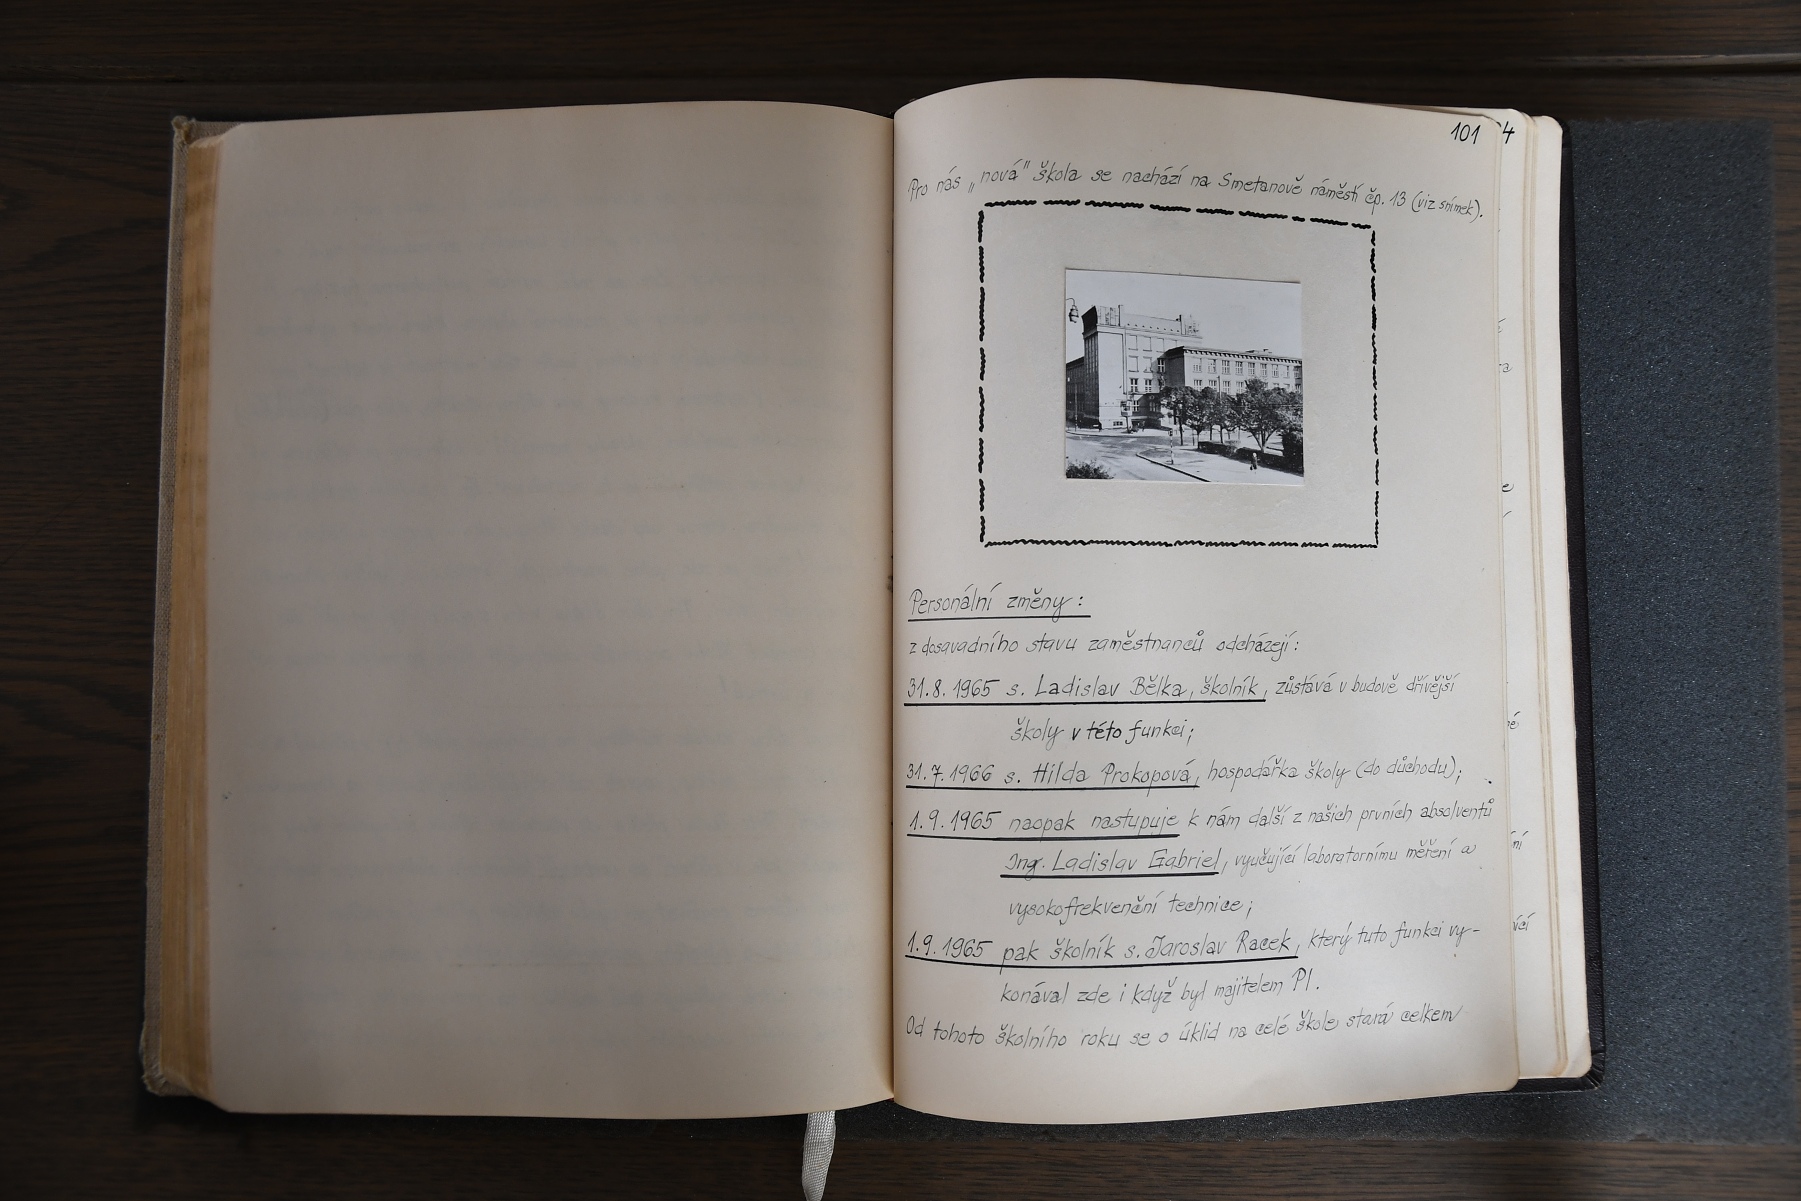 101
Pro nás „nová" škola se nachází na Smetanově náměstí čp. 13 (viz snímek).
Personální změny:
z dosavadního stavu zaměstnanců odcházejí:
31.8.1965 s. Ladislav Bělka, školník, zůstává v budově dřívější
školy v této funkci;
31.7.1966 s. Hilda Prokopová, hospodářka školy (do důchodu);
1.9.1965 naopak nastupuje k nám další z našich prvních absolventů
Ing. Ladislav Gabriel, vyučující laboratornímu měření a
vysokofrekvenční technice;
1.9.1965 pak školník s. Jaroslav Racek, který tuto funkci vy-
konával zde i když byl majitelem PI.
Od tohoto školního roku se o úklid na celé škole stará celkem